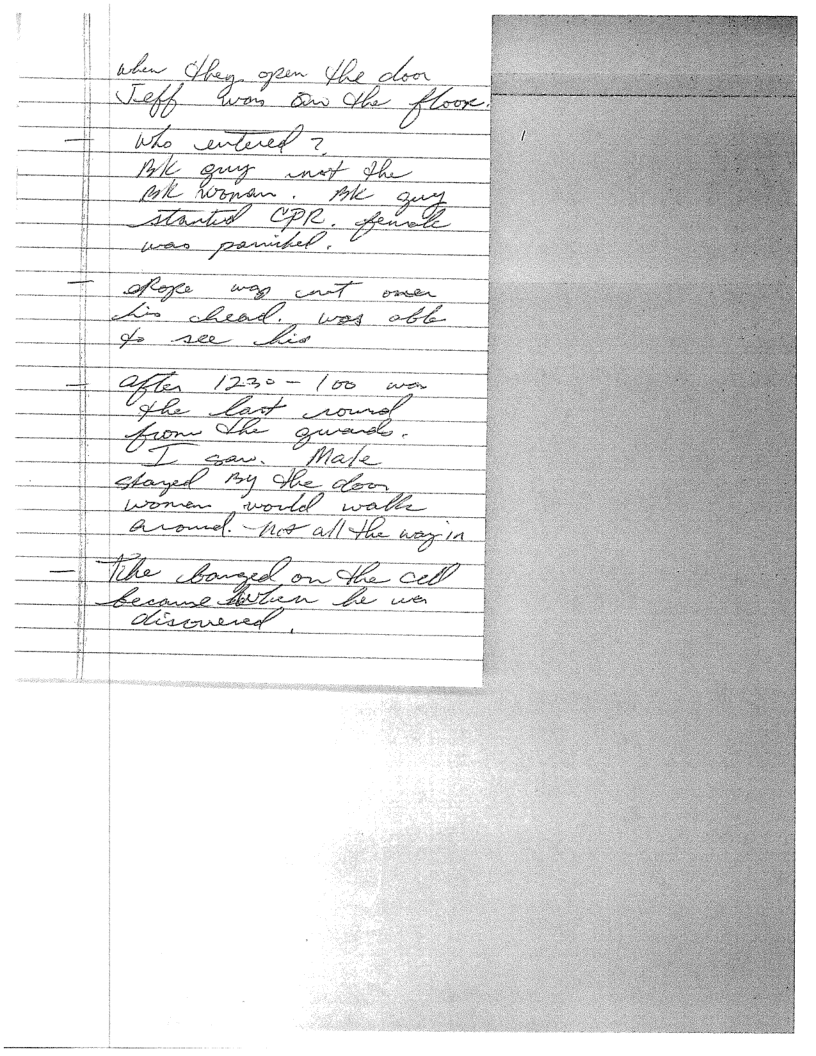 when they open the door
Jeff was on the floor.
— who entered?
Blk guy not the
Blk woman. Blk guy
started CPR. female
was panicked.
— Rope was not over
his head. was able
to see his
— after 1230 - 100 was
the last round
from the guards.
I saw. Male
stayed By the door
women would walk
around. not all the way in
— banged on the cell
because when he was
discovered.